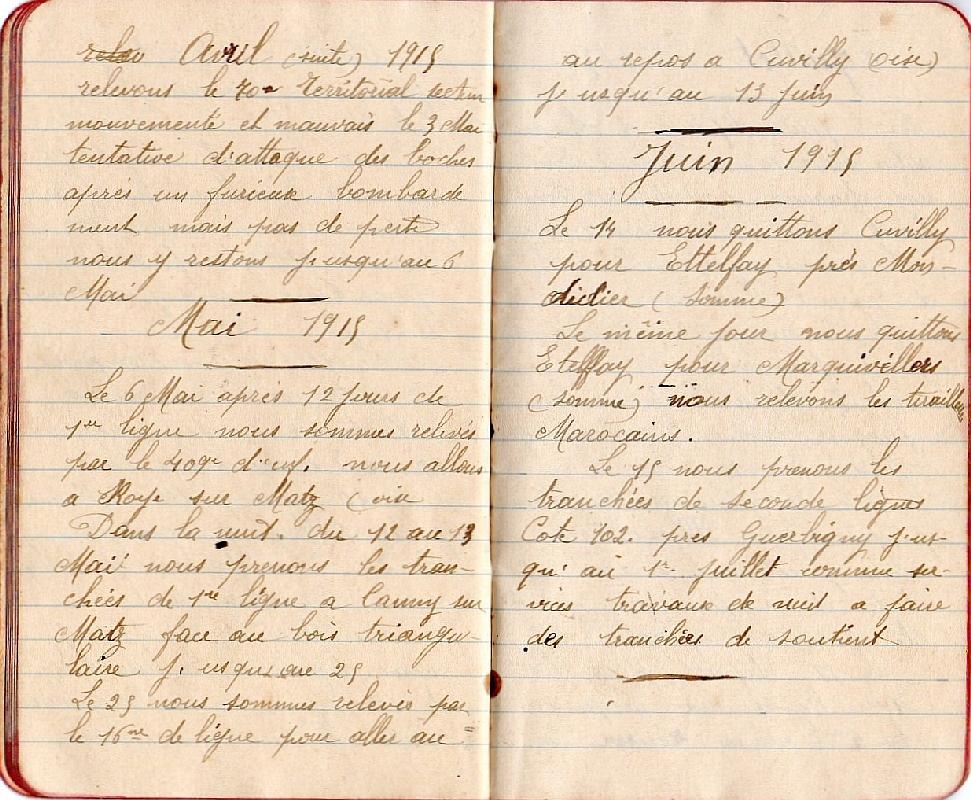 relev Avril (suite) 1915
relevons le 70e Territorial secteur
mouvementé et mauvais le 3 Mai
tentative d'attaque des boches
aprés un furieux bombarde
ment mais pas de perte
nous y restons jusqu'au 6
Mai
Mai 1915
Le 6 Mai aprés 12 jours de
1re ligne nous sommes relevés
par le 409e d'inf. nous allons
a Roye sur Matz (oise
Dans la nuit. du 12 au 13
Mai nous prenons les tran-
chées de 1re ligne a Canny sur
Matz face au bois triangu-
laire jusqu'au 25
Le 25 nous sommes relevés par
le 16me de ligne pour aller au
au repos a Cuvilly (oise)
jusqu'au 13 juin
Juin 1915
Le 14 nous quittons Cuvilly
pour Ettelfay prés Mon-
didier (Somme)
Le même jour nous quittons
Eteffay pour Marquivillers
(somme) nous relevons les tirailleurs
Marocains.
Le 15 nous prenons les
tranchées de seconde lignes
Cote 102. pres Guerbigny jus-
qu'au 1er juillet comme ser-
vices travaux de nuit a faire
des tranchées de soutient